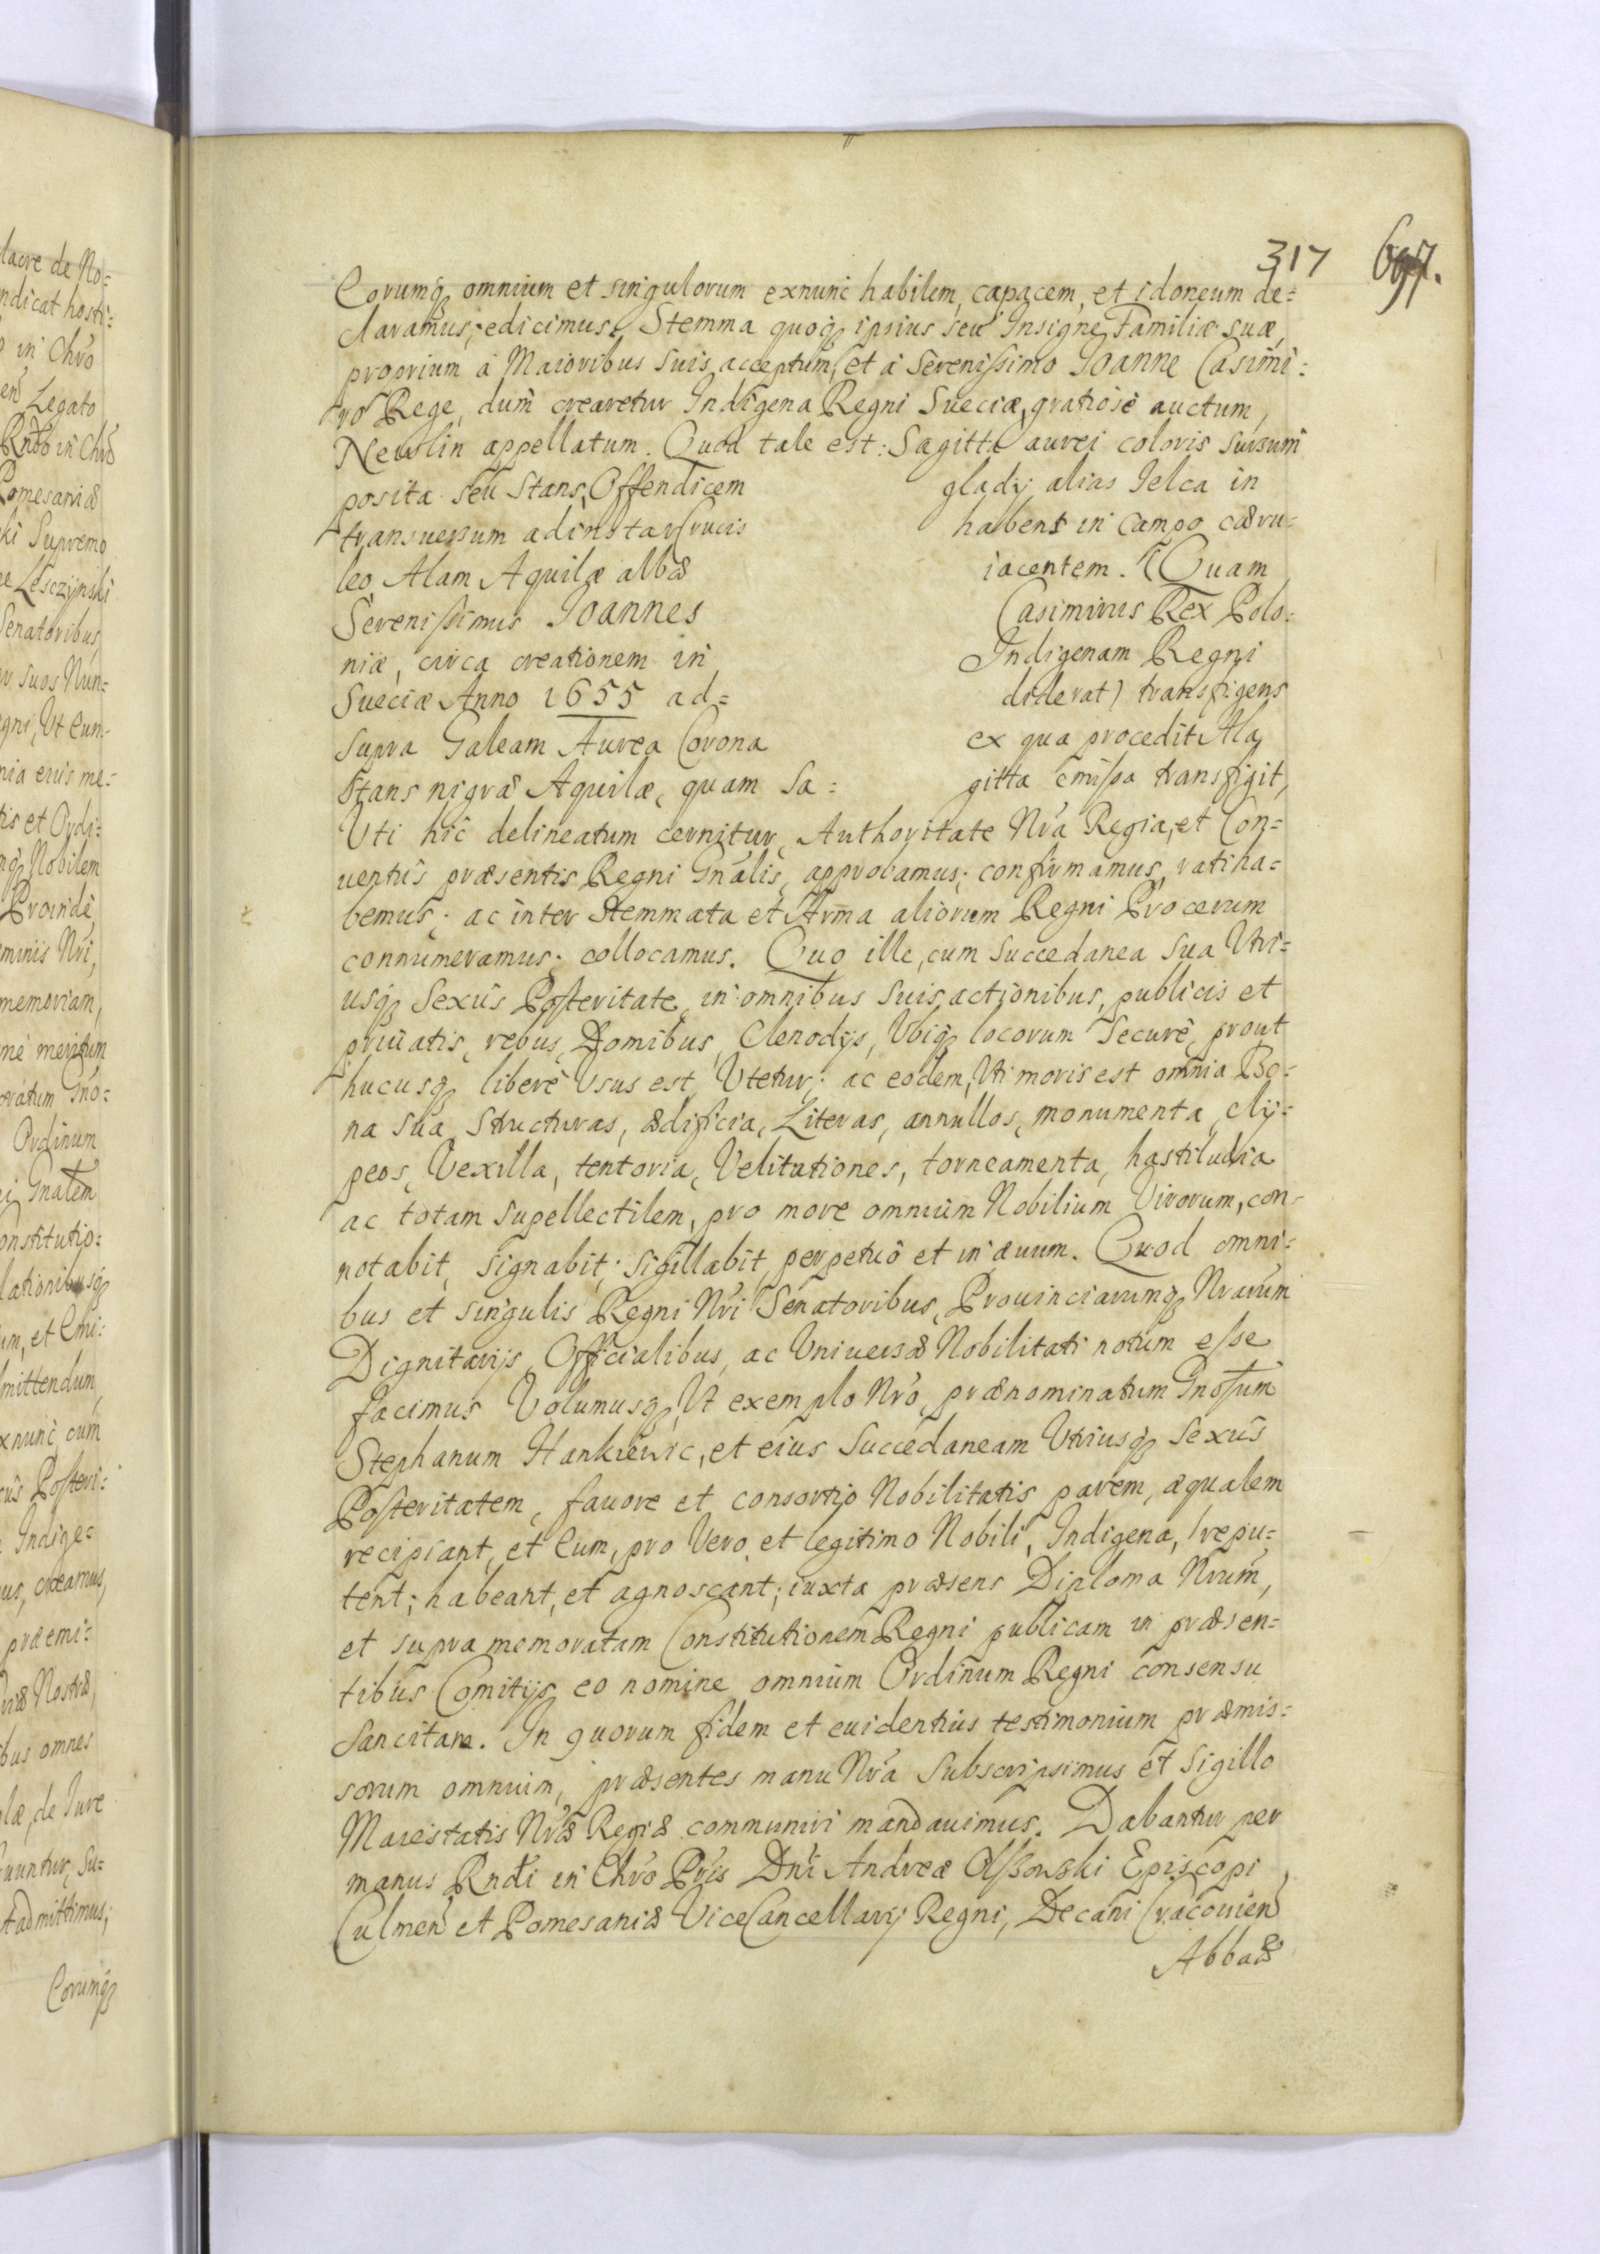 317 697.
Eorumq₃ omnium et singulorum exnunc habilem, capacem, et idoneum de=
claramus; edicimus. Stemma quoq₃ ipsius seu Insigne Familiæ suæ,
proprium à Maioribus suis acceptum, et à Serenissimo Joanne Casimi=
ro Rege, dum crearetur Indigena Regni Sueciæ, gratiosè auctum,
Newlin appellatum. Quod tale est: Sagitta aurei coloris sursum
posita seu stans, Offendicem gladij alias Jelca in
transuersum adinstar Crucis habens in Campo cæru=
leo, Alam Aquilæ albæ iacentem. (Quam
Serenissimus Joannes Casimirus Rex Polo=
niæ, circa creationem in Indigenam Regni
Sueciæ Anno 1655 ad= diderat) transfigens
supra Galeam Aurea Corona ex qua procedit Ala
stans nigræ Aquilæ, quam Sa= gitta emissa transfigit,
Vti hic delineatum cernitur, Authoritate Nrã Regia, et Con=
uentûs præsentis Regni Gnãlis, approbamus; confirmamus, ratiha=
bemus; ac inter Stemmata et Arma aliorum Regni Procerum
connumeramus; collocamus. Quo ille, cum Succedanea sua Vtri=
usq₃ Sexûs Posteritate, in omnibus suis actionibus, publicis et
priuatis, rebus, Domibus, Clenodijs, Vbiq₃ locorum Securè, prout
hucusq₃ liberè Vsus est, Vtetur; ac eodem, Vti moris est omnia Bo=
na sua, Structuras, ædificia, Literas, annullos, monumenta, clij=
peos, Vexilla, tentoria, Velitationes, torneamenta, hastiludia
ac totam supellectilem, pro more omnium Nobilium Virorum, con=
notabit, signabit; sigillabit, perpetuò et in æuum. Quod omni=
bus et singulis Regni Nri Senatoribus, Prouinciarumq₃ Nrarum
Dignitarijs, Officialibus, ac Vniuersæ Nobilitati notum esse
facimus Volumusq₃, Vt exemplo Nrõ, prænominatum Gnosum
Stephanum Hankiewic, et eius Succedaneam Vtriusq₃ Sexûs
Posteritatem, fauore et consortio Nobilitatis parem, æqualem
recipiant, et Eum, pro Vero et legitimo Nobili, Indigena, repu=
tent; habeant, et agnoscant; iuxta præsens Diploma Nrum,
et supra memoratam Constitutionem Regni publicam in præsen=
tibus Comitijs eo nomine omnium Ordinum Regni consensu
Sancitam. In quorum fidem et euidentius testimonium præmis=
sorum omnium, præsentes manu Nrã Subscripsimus et Sigillo
Maiestatis Nræ Regiæ communiri mandauimus. Dabantur per
manus Rndi in Chro Pris Dni Andreæ Olssowski Episcopi
Culmen et Pomesaniæ ViceCancellarij Regni, Decani Cracouien
Abbaæ